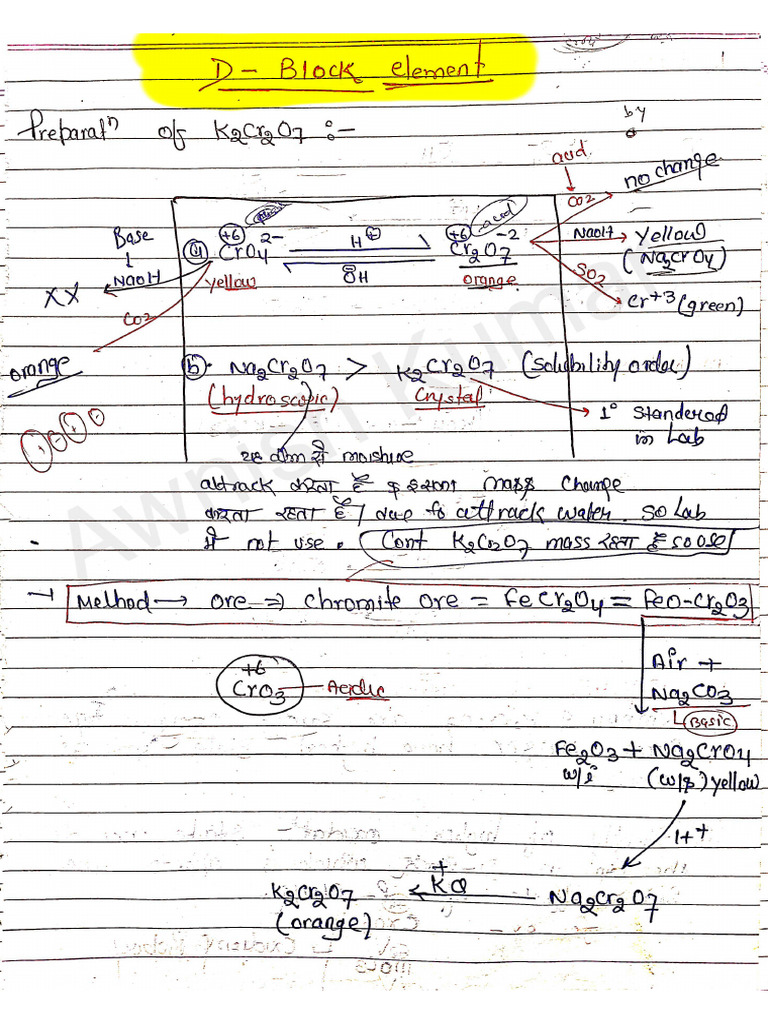 D - Block element
Preparatⁿ of K2Cr2O7 :-
by
acid
CO2
no change
Base
NaOH
XX
CO2
orange
(a) +6 CrO4 2-
yellow
H+
OH
acid
+6 Cr2O7 -2
orange
NaOH
yellow
(Na2CrO4)
SO2
Cr+3 (green)
(b) Na2Cr2O7 > K2Cr2O7 (Solubility order)
(hydroscopic) Crystal
1° Standered
in Lab
moishure
attrack करता है mass change
करता रहता है / due to attrack water. so Lab
में not use. Cont K2Cr2O7 mass रहता है so use
→ Method → ore ⇒ chromite ore = FeCr2O4 = FeO-Cr2O3
+6
CrO3 Acidic
Air +
Na2CO3
Basic
Fe2O3 + Na2CrO4
w/i (w/s) yellow
H+
K2Cr2O7 ← KCl Na2Cr2O7
+
(orange)
Awnish Kumar